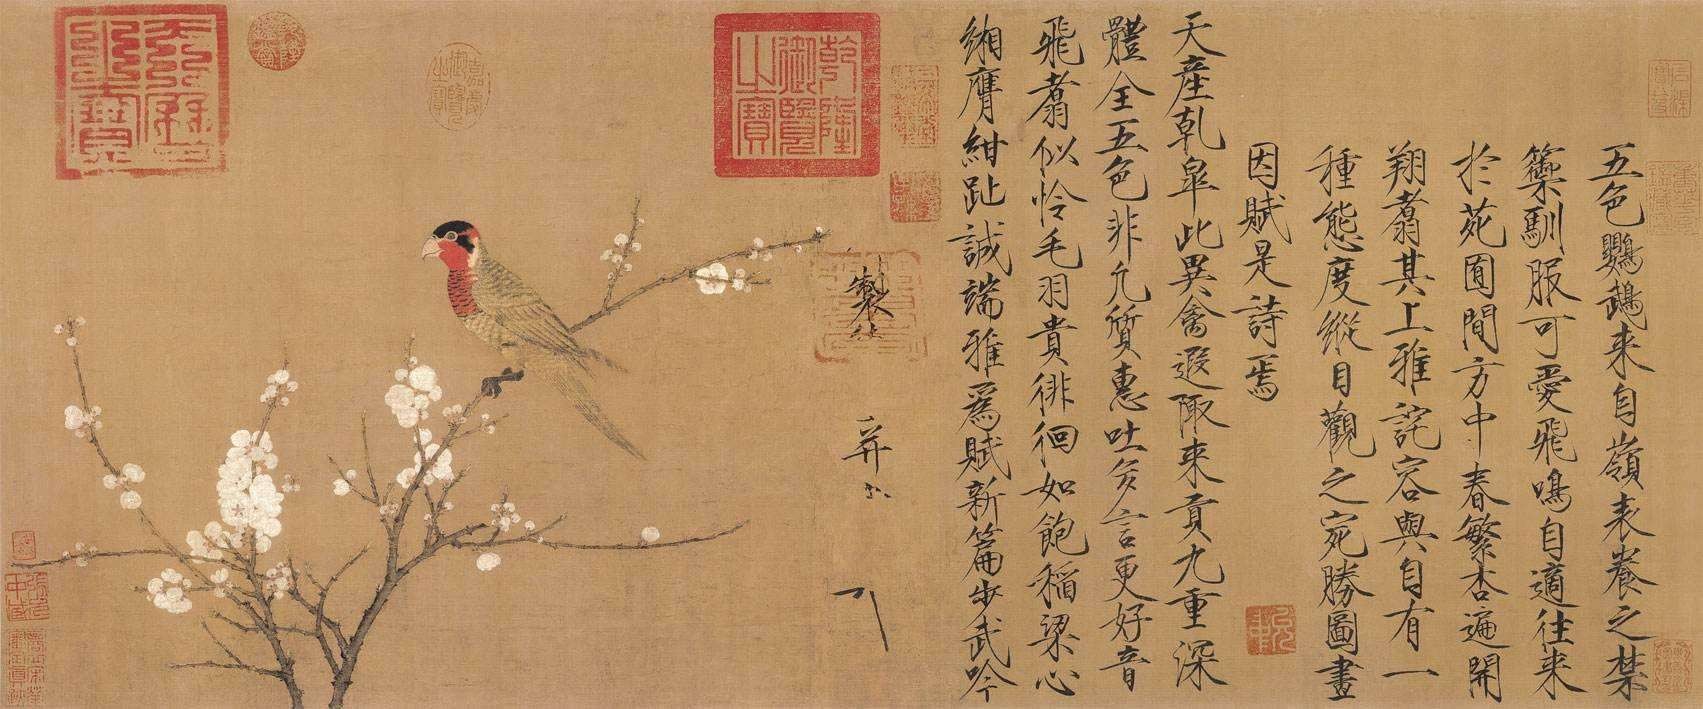 五色鸚鵡来自嶺表養之禁
籞馴服可愛飛鳴自適往来
於苑囿間方中春繁杏遍開
翔翥其上雅詫容與自有一
種態度縱目觀之宛勝圖畫
因賦是詩焉
天産乾皐此異禽遐陬来貢九重深
體全五色非凡質惠吐多言更好音
飛翥似怜毛羽貴徘徊如飽稲粱心
緗膺紺趾誠端雅爲賦新篇步武吟
製
并
乾隆御覽之寶
嘉慶御覽之寶